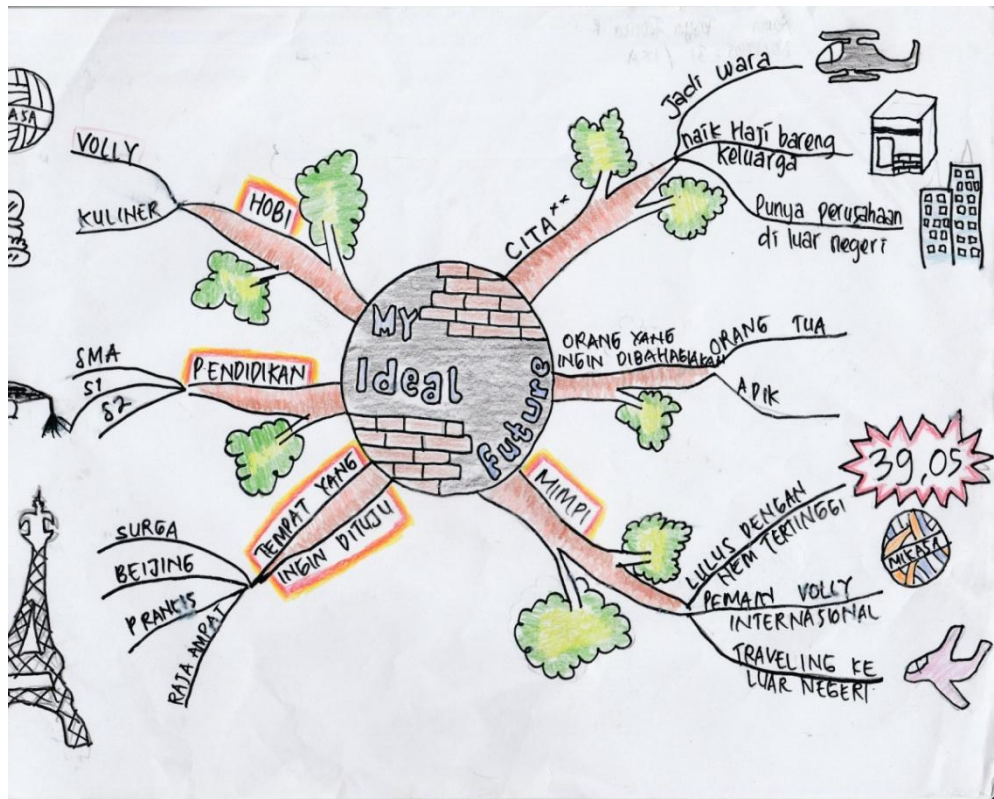 My
Ideal
Future
HOBI
VOLLY
KULINER
ASA
PENDIDIKAN
SMA
S1
S2
TEMPAT YANG
INGIN DITUJU
SURGA
BEIJING
PRANCIS
RAJA AMPAT
CITA**
Jadi wara
naik Haji bareng
keluarga
Punya perusahaan
di luar negeri
ORANG YANG
INGIN DIBAHAGIAKAN
ORANG TUA
ADIK
MIMPI
LULUS DENGAN
NEM TERTINGGI
39,05
PEMAIN VOLLY
INTERNASIONAL
MIKASA
TRAVELING KE
LUAR NEGERI